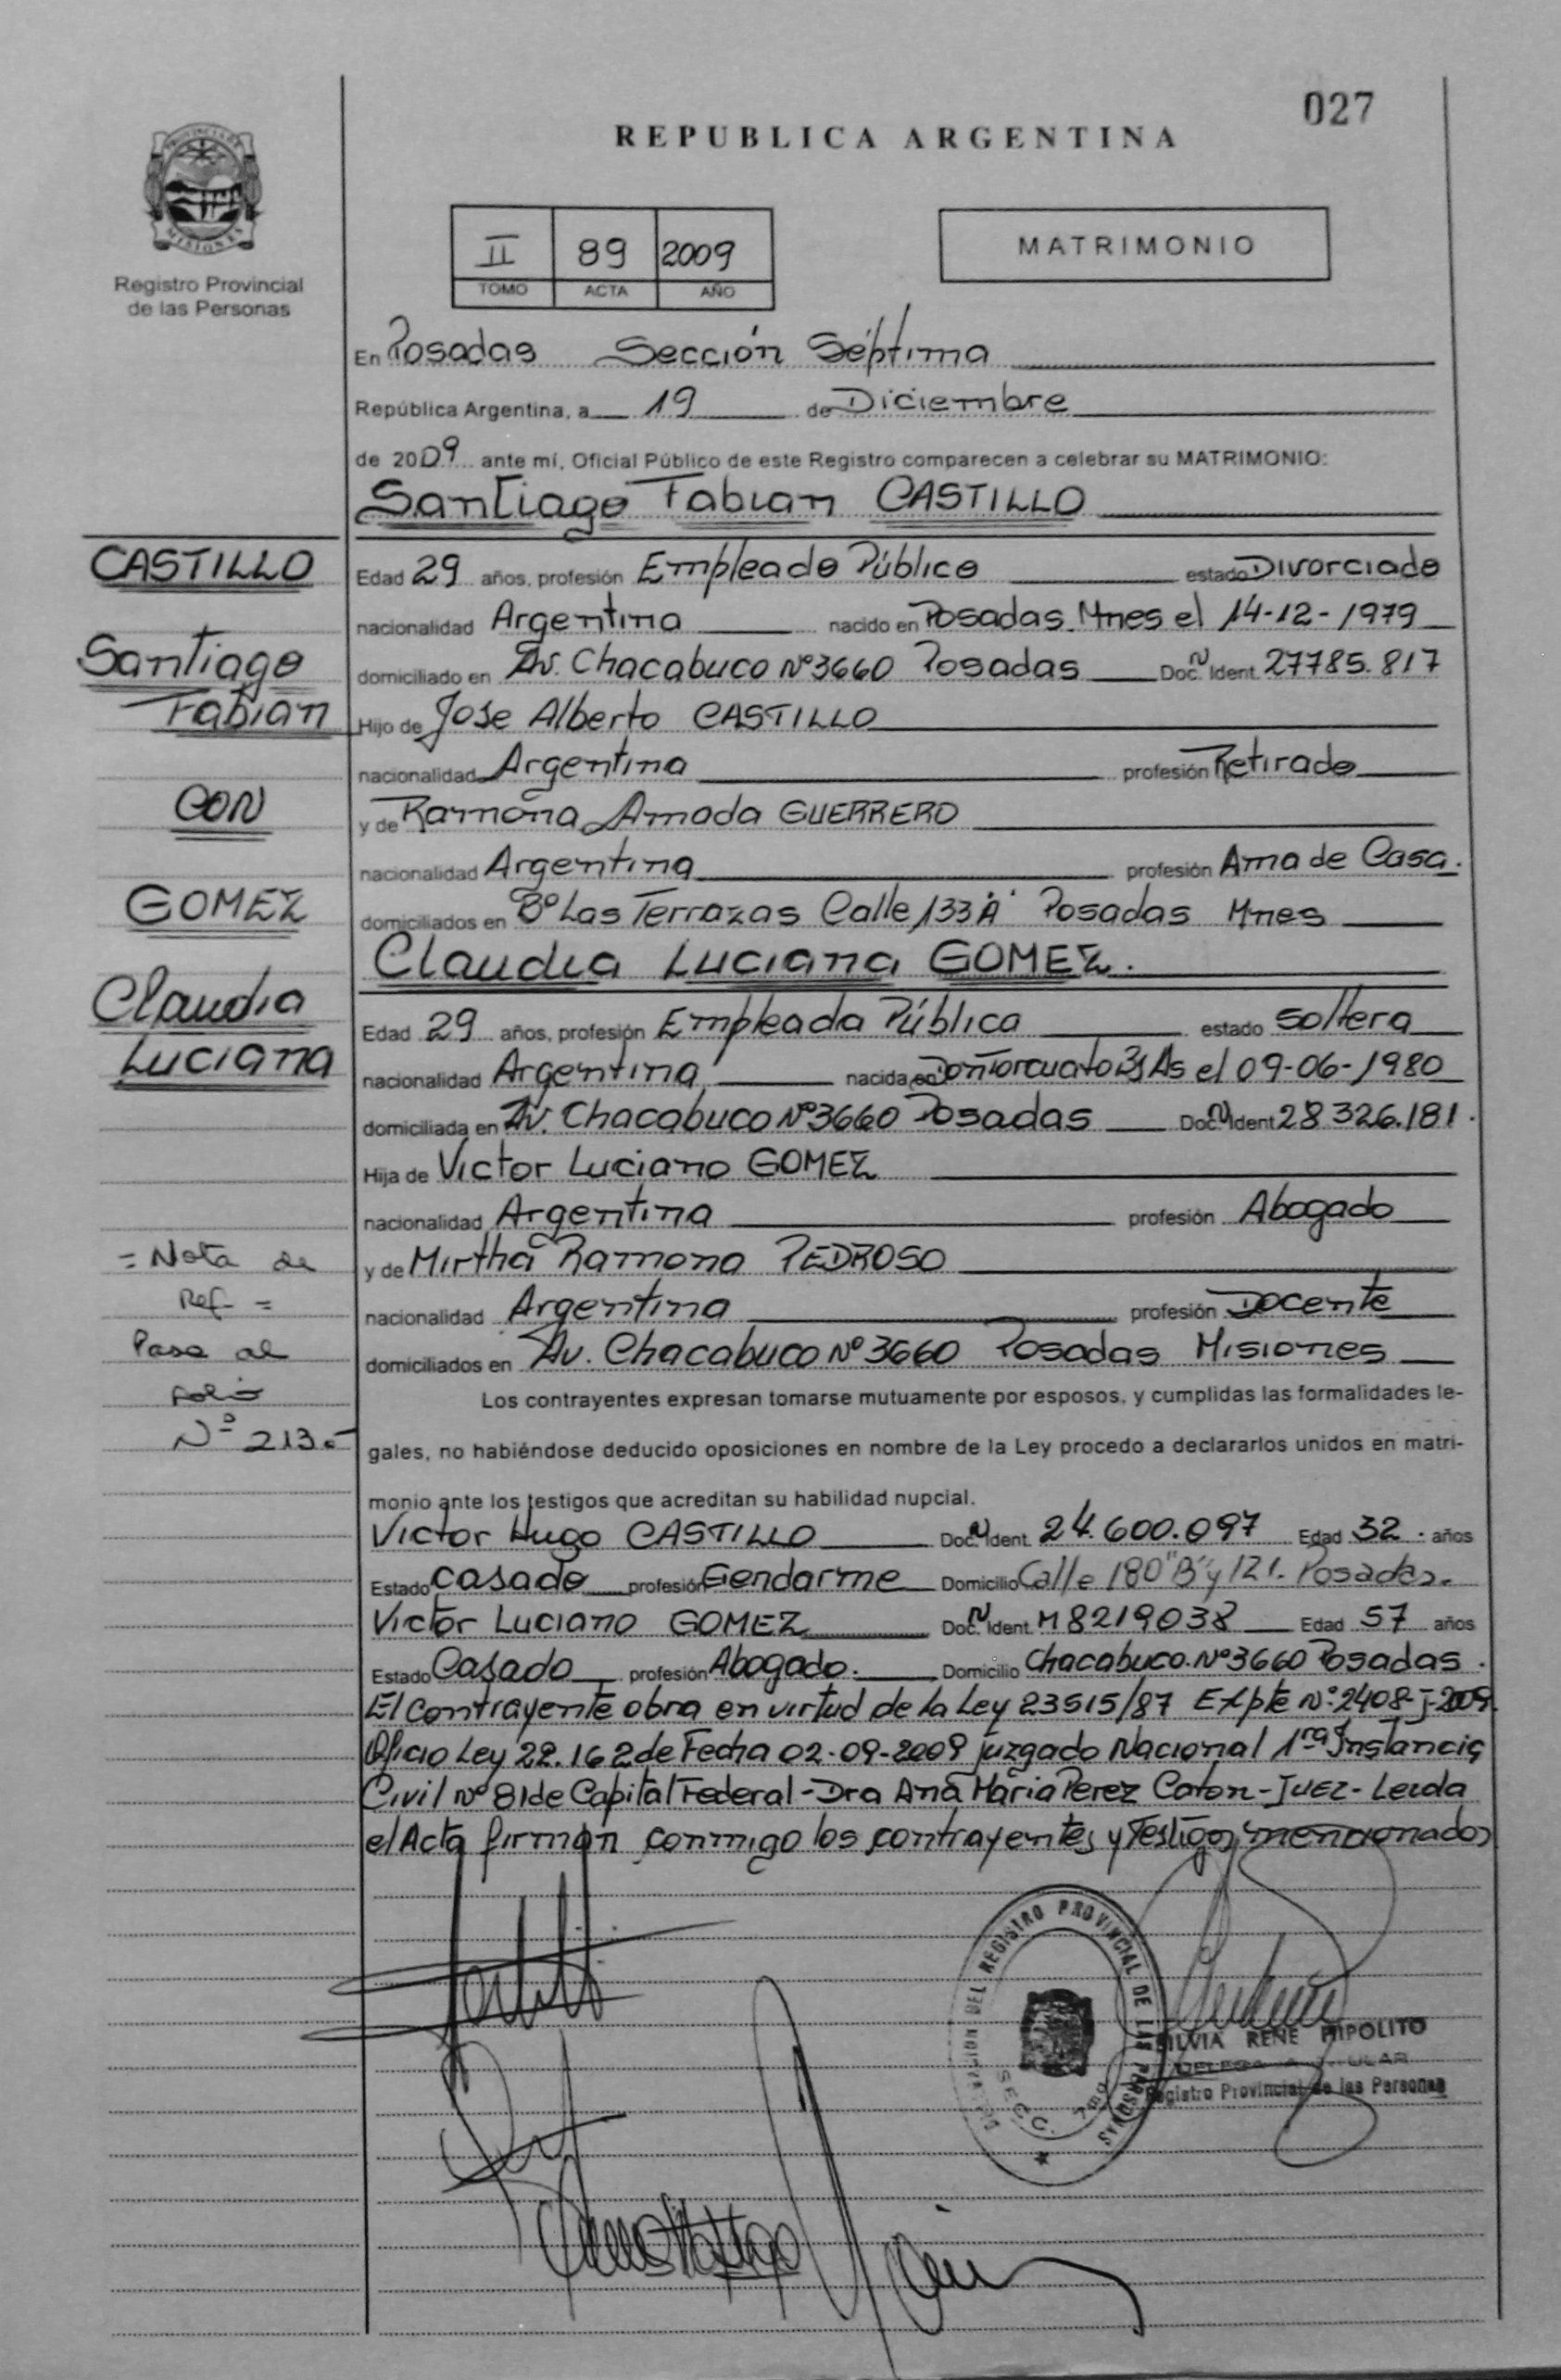 027
REPUBLICA ARGENTINA
PROVINCIA DE MISIONES
Registro Provincial
de las Personas
II 89 2009
TOMO ACTA AÑO
MATRIMONIO
En Posadas Sección Séptima
República Argentina, a 19 de Diciembre
de 2009 ante mí, Oficial Público de este Registro comparecen a celebrar su MATRIMONIO:
Santiago Fabian CASTILLO
CASTILLO
Santiago
Fabian
CON
GOMEZ
Claudia
Luciana
Edad 29 años, profesión Empleado Público estado Divorciado
nacionalidad Argentina nacido en Posadas Mnes el 14-12-1979
domiciliado en Av. Chacabuco Nº 3660 Posadas Doc. N Ident. 27785.817
Hijo de Jose Alberto CASTILLO
nacionalidad Argentina profesión Retirado
y de Ramona Amada GUERRERO
nacionalidad Argentina profesión Ama de Casa.
domiciliados en Bº Las Terrazas Calle 133 "A" Posadas Mnes
Claudia Luciana GOMEZ.
Edad 29 años, profesión Empleada Pública estado soltera
nacionalidad Argentina nacida en Don Torcuato Bs As el 09-06-1980
domiciliada en Av. Chacabuco Nº 3660 Posadas Doc. N Ident 28326.181.
Hija de Victor Luciano GOMEZ
nacionalidad Argentina profesión Abogado
y de Mirtha Ramona PEDROSO
nacionalidad Argentina profesión Docente
domiciliados en Av. Chacabuco Nº 3660 Posadas Misiones
= Nota de
Ref =
Pasa al
folio
Nº 213.-
Los contrayentes expresan tomarse mutuamente por esposos, y cumplidas las formalidades le-
gales, no habiéndose deducido oposiciones en nombre de la Ley procedo a declararlos unidos en matri-
monio ante los testigos que acreditan su habilidad nupcial.
Victor Hugo CASTILLO Doc. N Ident. 24.600.097 Edad 32. años
Estado Casado profesión Gendarme Domicilio Calle 180 "B" y 121. Posadas.
Victor Luciano GOMEZ Doc. N Ident. M 8219038 Edad 57 años
Estado Casado profesión Abogado. Domicilio Chacabuco. Nº 3660 Posadas.
El contrayente obra en virtud de la Ley 23515/87 Expte Nº: 2408-J-2009.
Oficio Ley 22.162 de Fecha 02-09-2009 juzgado Nacional 1ra Instancia
Civil Nº 81 de Capital Federal - Dra Ana Maria Perez Caton - JUEZ - Leida
el Acta firman conmigo los contrayentes y Testigos mencionados
DEL REGISTRO PROVINCIAL DE LAS PERSONAS
SECC. 7ma
SILVIA RENE HIPOLITO
Registro Provincial de las Personas